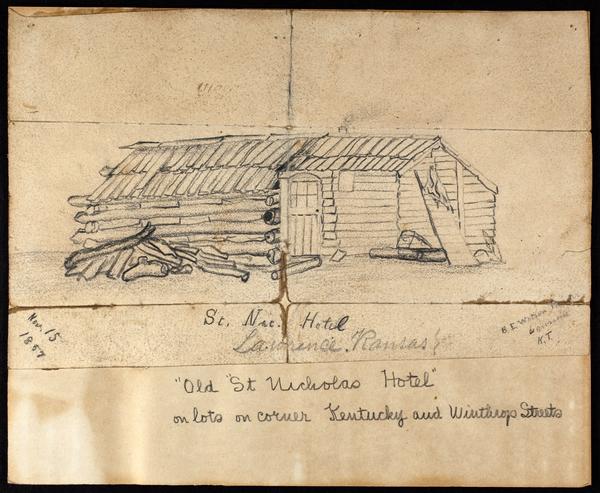 St. Nic. Hotel
Lawrence, Kansas
Nov. 15
1857
B. E.
Lawrence
K.T.
"Old "St Nicholas Hotel"
on lots on corner Kentucky and Winthrop Streets